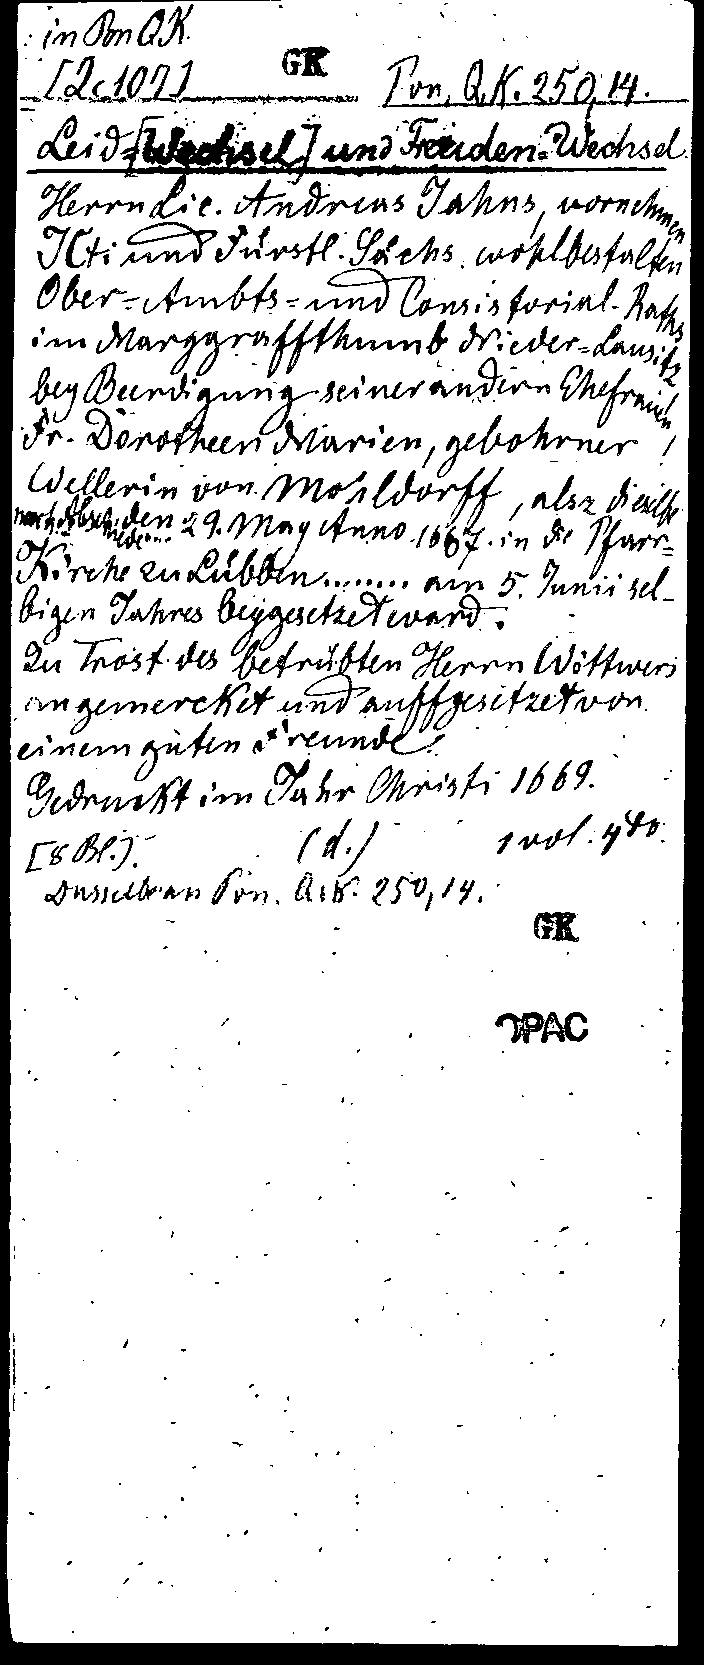 in Pon QK
[2c107] GK Pon. QK. 250,14.
Leid=[Wechsel] und Freuden=Wechsel
Herrn Lic. Andreas Jahns, vornehmen
JCti und Fürstl. Sächs. wohlbestalten
Ober=Ambts= und Consistorial-Raths
im Marggraffthumb Nieder=Lausitz
bey Beerdigung seiner andern Ehefrauen
Fr. Dorotheen Marien, gebohrner
Wellerin von Molsdorff, alsz dieselbe
den 29. May Anno 1667. in die Pfarr=
Kirche zu Lübben........ am 5. Junii sel-
bigen Jahres beygesetzet ward.
Zu Trost des betrübten Herrn Wittwers
angemercket und auffgesetzet von
einem guten Freunde.
Gedruckt im Jahr Christi 1669.
[8 Bl.]. (d.) 1 vol. 4to.
Dasselbe an Pon. QK. 250,14.
GK
OPAC